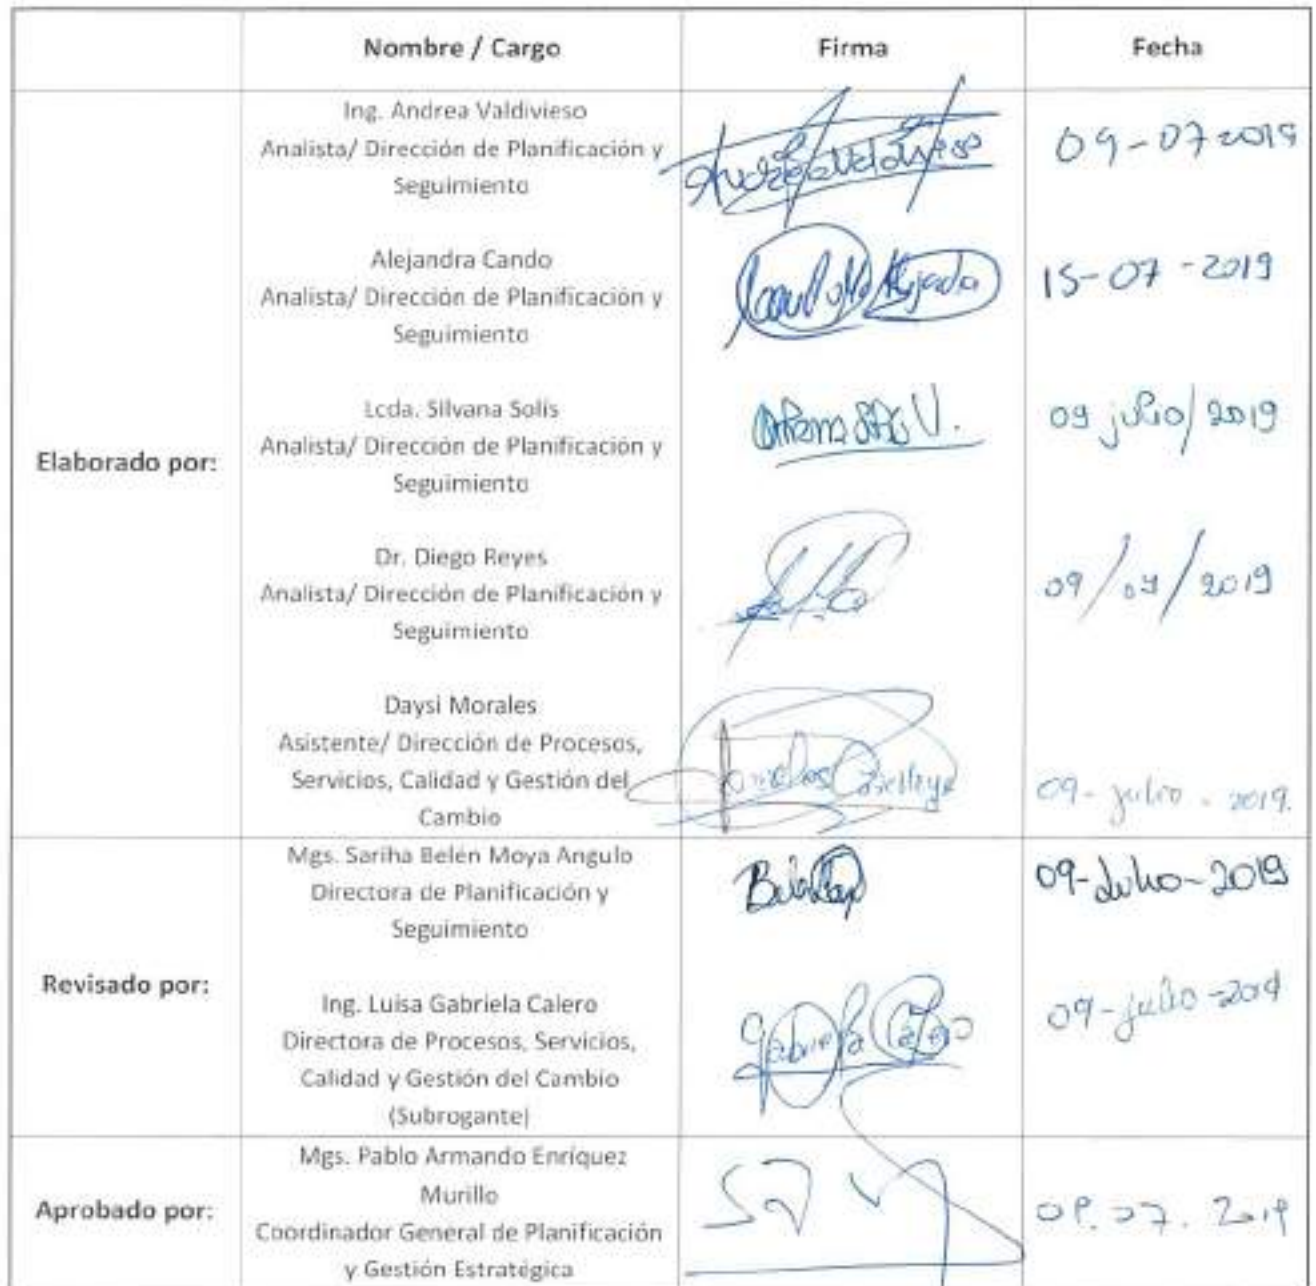 Nombre / Cargo
Firma
Fecha
Elaborado por:
Ing. Andrea Valdivieso
Analista/ Dirección de Planificación y
Seguimiento
09-07 2019
Alejandra Cando
Analista/ Dirección de Planificación y
Seguimiento
15-07-2019
Lcda. Silvana Solís
Analista/ Dirección de Planificación y
Seguimiento
09 julio/2019
Dr. Diego Reyes
Analista/ Dirección de Planificación y
Seguimiento
09/07/2019
Daysi Morales
Asistente/ Dirección de Procesos,
Servicios, Calidad y Gestión del
Cambio
09-julio-2019.
Revisado por:
Mgs. Sariha Belén Moya Angulo
Directora de Planificación y
Seguimiento
09-Julio-2019
Ing. Luisa Gabriela Calero
Directora de Procesos, Servicios,
Calidad y Gestión del Cambio
(Subrogante)
Gabriela Calero
09-julio-2019
Aprobado por:
Mgs. Pablo Armando Enríquez
Murillo
Coordinador General de Planificación
y Gestión Estratégica